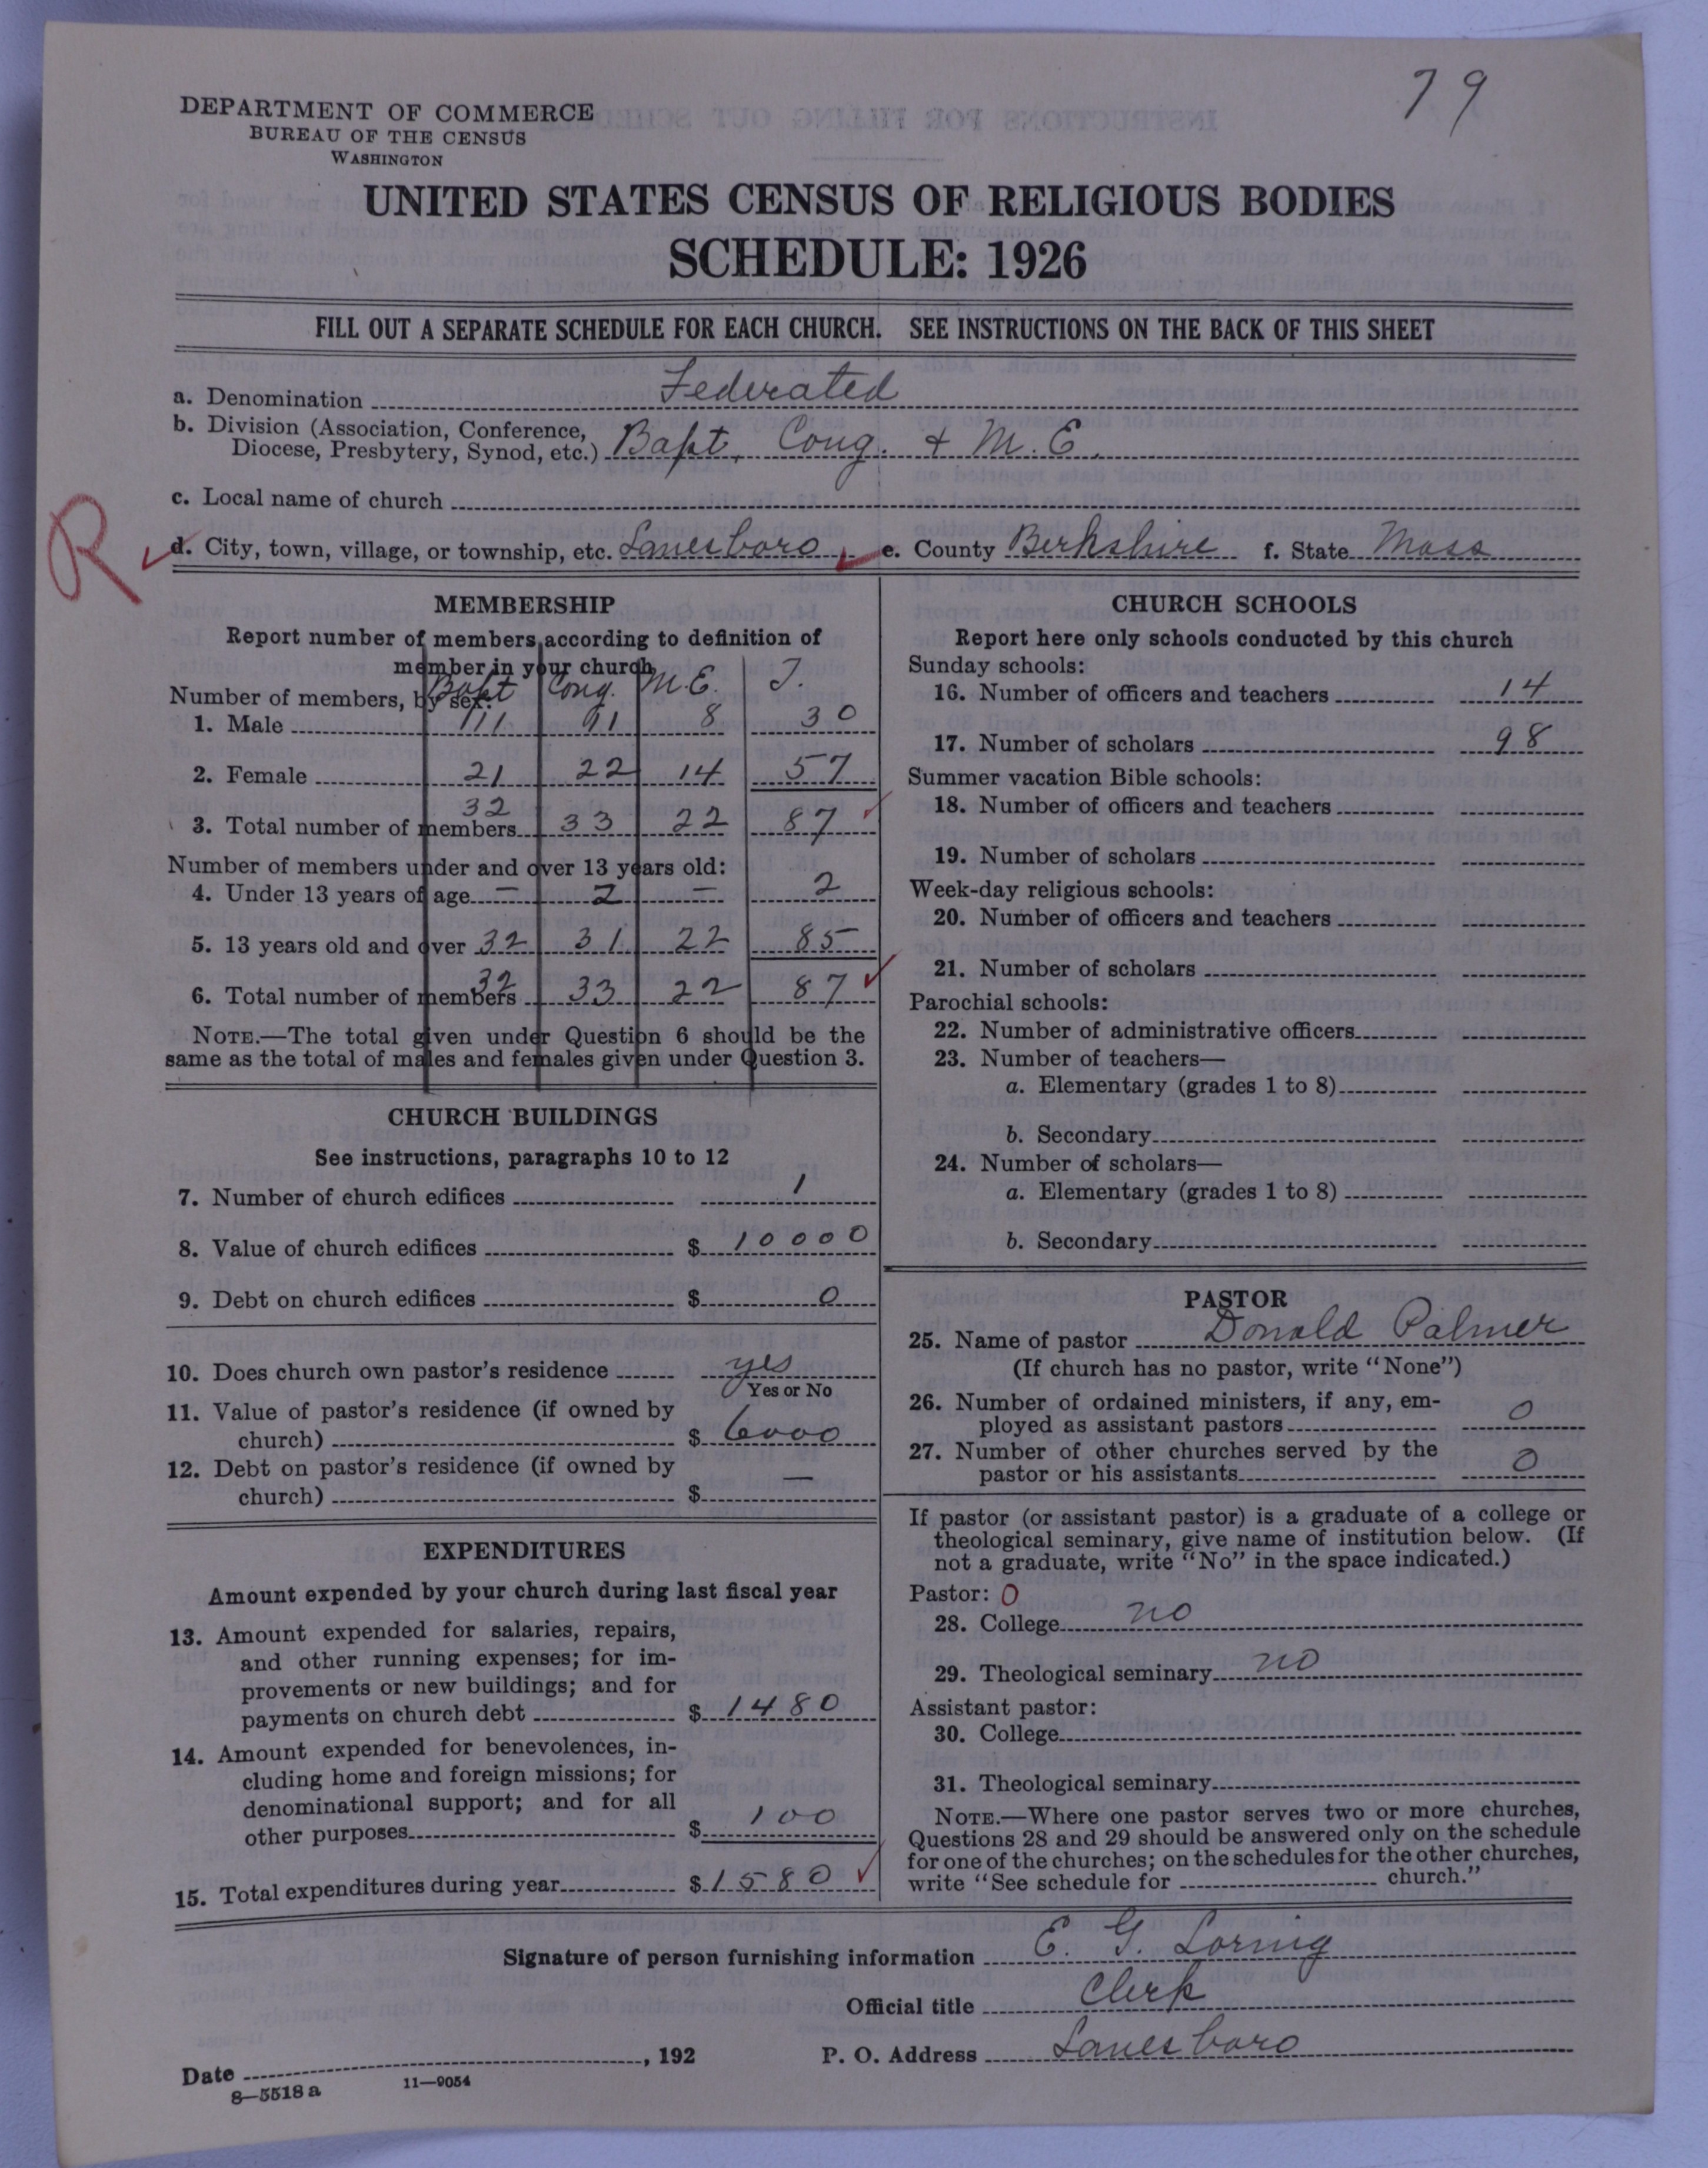 79
DEPARTMENT OF COMMERCE
BUREAU OF THE CENSUS
WASHINGTON
UNITED STATES CENSUS OF RELIGIOUS BODIES
SCHEDULE: 1926
FILL OUT A SEPARATE SCHEDULE FOR EACH CHURCH. SEE INSTRUCTIONS ON THE BACK OF THIS SHEET
a. Denomination Federated
b. Division (Association, Conference,
Diocese, Presbytery, Synod, etc.) Bapt. Cong. + M.E.
c. Local name of church
R
d. City, town, village, or township, etc. Lanesboro e. County Berkshire f. State Mass
MEMBERSHIP
Report number of members according to definition of
member in your church
Bapt Cong. M.E. T.
Number of members, by sex:
1. Male 11 11 8 30
2. Female 21 22 14 57
3. Total number of members 32 33 22 87
Number of members under and over 13 years old:
4. Under 13 years of age — 2 — 2
5. 13 years old and over 32 31 22 85
6. Total number of members 32 33 22 87
NOTE.—The total given under Question 6 should be the
same as the total of males and females given under Question 3.
CHURCH BUILDINGS
See instructions, paragraphs 10 to 12
7. Number of church edifices 1
8. Value of church edifices $ 10000
9. Debt on church edifices $ 0
10. Does church own pastor's residence yes
Yes or No
11. Value of pastor's residence (if owned by
church) $ 6000
12. Debt on pastor's residence (if owned by
church) $ —
EXPENDITURES
Amount expended by your church during last fiscal year
13. Amount expended for salaries, repairs,
and other running expenses; for im-
provements or new buildings; and for
payments on church debt $ 1480
14. Amount expended for benevolences, in-
cluding home and foreign missions; for
denominational support; and for all
other purposes $ 100
15. Total expenditures during year $ 1580
CHURCH SCHOOLS
Report here only schools conducted by this church
Sunday schools:
16. Number of officers and teachers 14
17. Number of scholars 98
Summer vacation Bible schools:
18. Number of officers and teachers
19. Number of scholars
Week-day religious schools:
20. Number of officers and teachers
21. Number of scholars
Parochial schools:
22. Number of administrative officers
23. Number of teachers—
a. Elementary (grades 1 to 8)
b. Secondary
24. Number of scholars—
a. Elementary (grades 1 to 8)
b. Secondary
PASTOR
25. Name of pastor Donald Palmer
(If church has no pastor, write "None")
26. Number of ordained ministers, if any, em-
ployed as assistant pastors 0
27. Number of other churches served by the
pastor or his assistants 0
If pastor (or assistant pastor) is a graduate of a college or
theological seminary, give name of institution below. (If
not a graduate, write "No" in the space indicated.)
Pastor: 0
28. College no
29. Theological seminary no
Assistant pastor:
30. College
31. Theological seminary
NOTE.—Where one pastor serves two or more churches,
Questions 28 and 29 should be answered only on the schedule
for one of the churches; on the schedules for the other churches,
write "See schedule for church."
Signature of person furnishing information E. G. Loring
Official title Clerk
Date , 192 P. O. Address Lanesboro
8—5518 a 11—9054